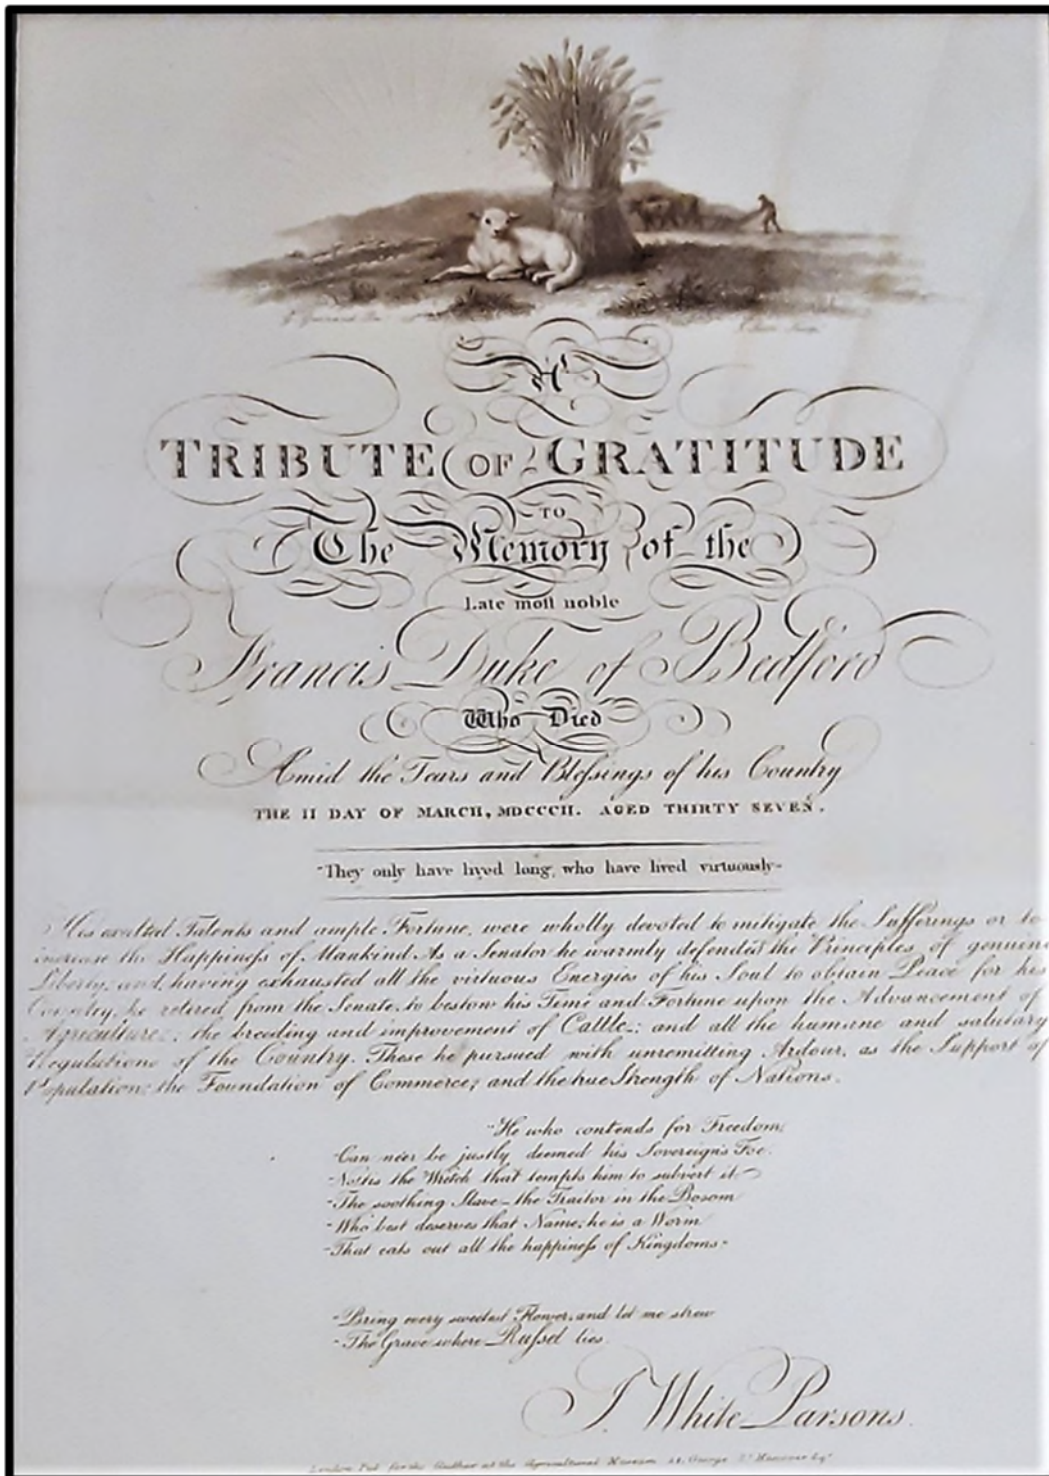 A
TRIBUTE OF GRATITUDE
TO
The Memory of the
Late most noble
Francis Duke of Bedford
Who Died
Amid the Tears and Blessings of his Country
THE II DAY OF MARCH, MDCCCII. AGED THIRTY SEVEN.
"They only have lived long, who have lived virtuously"
His exalted Talents and ample Fortune, were wholly devoted to mitigate the Sufferings or to
increase the Happiness of Mankind As a Senator he warmly defended the Principles of genuine
Liberty, and, having exhausted all the virtuous Energies of his Soul to obtain Peace for his
Country, he retired from the Senate, to bestow his Time and Fortune upon the Advancement of
Agriculture, the breeding and improvement of Cattle; and all the humane and salutary
Regulations of the Country. These he pursued with unremitting Ardour, as the Support of
Population; the Foundation of Commerce; and the true Strength of Nations.
"He who contends for Freedom,
"Can neer be justly deemed his Sovereign's Foe.
"No, tis the Wretch that tempts him to subvert it
"The soothing Slave – the Traitor in the Bosom
"Who best deserves that Name; he is a Worm
"That eats out all the happiness of Kingdoms"
"Bring every sweetest Flower, and let me strew
"The Grave where Russel lies.
J. White Parsons.
London Pub for the Author at the Agricultural Museum George St Hanover Sqr